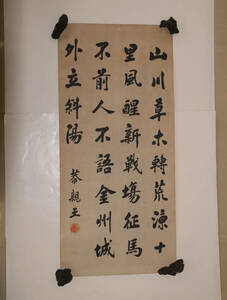 山川草木轉荒涼十
里風腥新戰塲征馬
不前人不語金州城
外立斜陽
恭親王